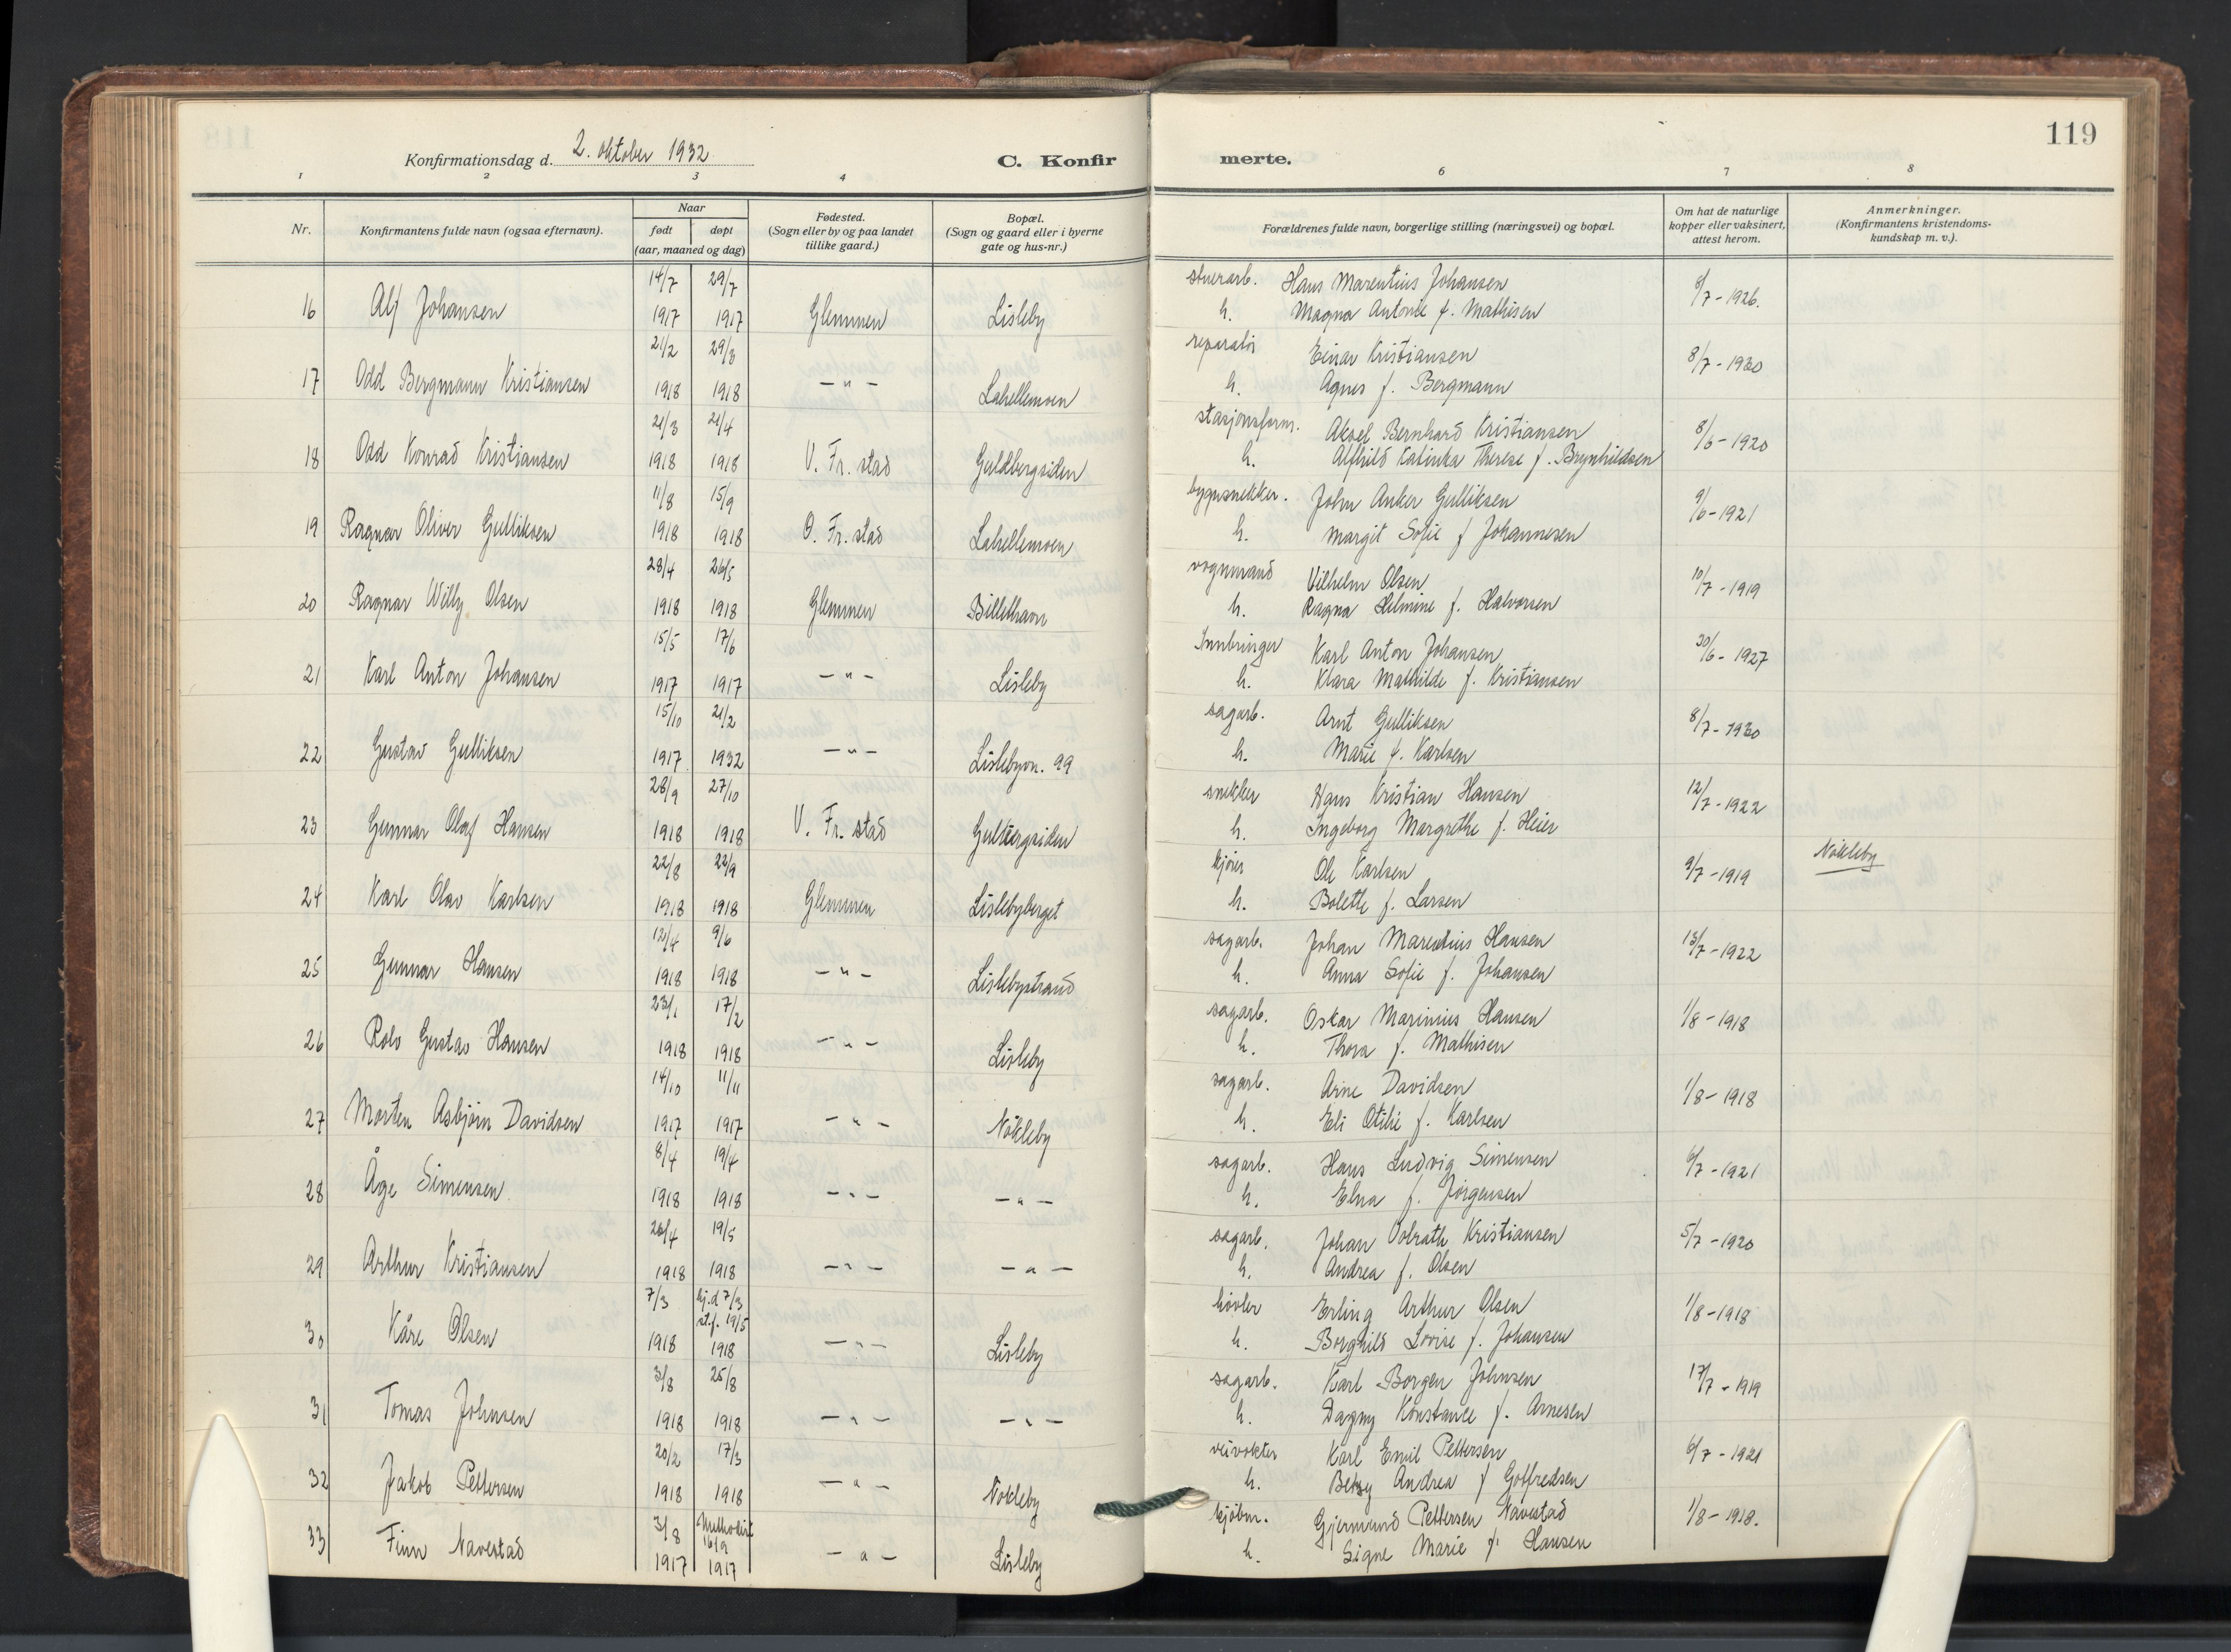 119
Konfirmationsdag d. 2. oktober 1932
C. Konfir merte.
1 2 3 4 6 7 8
Nr.
Konfirmantens fulde navn (ogsaa efternavn).
Naar
født døpt
(aar, maaned og dag)
Fødested.
(Sogn eller by og paa landet
tillike gaard.)
Bopæl.
(Sogn og gaard eller i byerne
gate og hus-nr.)
Forældrenes fulde navn, borgerlige stilling (næringsvei) og bopæl.
Om hat de naturlige
kopper eller vaksinert,
attest herom.
Anmerkninger.
(Konfirmantens kristendoms-
kundskap m. v.).
14/7 29/7 stuerarb. Hans Marentius Johansen
16 Alf Johansen 1917 1917 Glemmen Lisleby h. Magna Antonie f. Mathisen 8/7 - 1926.
21/2 29/3 reparatør Einar Kristiansen
17 Odd Bergmann Kristiansen 1918 1918 — " — Lahellemoen h. Agnes f. Bergmann 8/7 - 1930
21/3 21/4 stasjonsform. Aksel Bernhard Kristiansen
18 Odd Konrad Kristiansen 1918 1918 V. Fr. stad Guldbergsiden h. Alfhild Katinka Therese f. Brynhildsen 8/6 - 1920
11/8 15/9 bygnsnekker. John Anker Gulliksen
19 Ragnar Oliver Gulliksen 1918 1918 O. Fr. stad Lahellemoen h. Margit Sofie f Johannesen 9/6 - 1921
28/4 26/5 vognmand Vilhelm Olsen
20 Ragnar Willy Olsen 1918 1918 Glemmen Billethavn h. Ragna Helmine f. Halvorsen 10/7 - 1919
15/5 17/6 Innbringer Karl Anton Johansen
21 Karl Anton Johansen 1917 1917 — " — Lisleby h. Klara Mathilde f. Kristiansen 30/6 - 1927
15/10 21/2 sagarb. Arnt Gulliksen
22 Gustav Gulliksen 1917 1932 — " — Lislebyvn. 99 h. Marie f. Karlsen 8/7 - 1930
28/9 27/10 snekker Hans Kristian Hansen
23 Gunnar Olaf Hansen 1918 1918 V. Fr. stad Gulbergsiden h. Ingeborg Margrethe f. Heier 12/7 - 1922
22/8 22/9 kjører Ole Karlsen Nökleby
24 Karl Olav Karlsen 1918 1918 Glemmen Lislebyberget h. Bolette f. Larsen 9/7 - 1919
12/4 9/6 sagarb. Johan Marentius Hansen
25 Gunnar Hansen 1918 1918 — " — Lislebystrand h. Anna Sofie f. Johansen 13/7 - 1922
23/1 17/2 sagarb. Oskar Marinius Hansen
26 Rolv Gustav Hansen 1918 1918 — " — Lisleby h. Thora f. Mathisen 1/8 - 1918
14/10 11/11 sagarb. Arne Davidsen
27 Morten Asbjörn Davidsen 1917 1917 — " — Nökleby h. Eli Otilie f. Karlsen 1/8 - 1918
8/4 19/4 sagarb. Hans Ludvig Simensen
28 Åge Simensen 1918 1918 — " — — " — h. Elna f. Jörgensen 6/7 - 1921
20/4 19/5 sagarb. Johan Volrath Kristiansen
29 Arthur Kristiansen 1918 1918 — " — — " — h. Andrea f. Olsen 5/7 - 1920
7/3 hj.d 7/3 hövler Erling Arthur Olsen
st.f. 19/5
30 Kåre Olsen 1918 1918 — " — Lisleby h. Borghild Lovise f. Johansen 1/8 - 1918
3/8 25/8 sagarb. Karl Borgen Johnsen
31 Tomas Johnsen 1918 1918 — " — — " — h. Dagny Konstance f. Arnesen 17/7 - 1919
20/2 17/3 veivokter Karl Emil Pettersen
32 Jakob Pettersen 1918 1918 — " — Nökleby h. Betsy Andrea f Gotfredsen 6/7 - 1921
3/8 Methodist 16/9 kjöbm. Gjermund Pettersen Navestad
33 Finn Navestad 1917 1917 — " — Lisleby h. Signe Marie f. Hansen 1/8 - 1918.